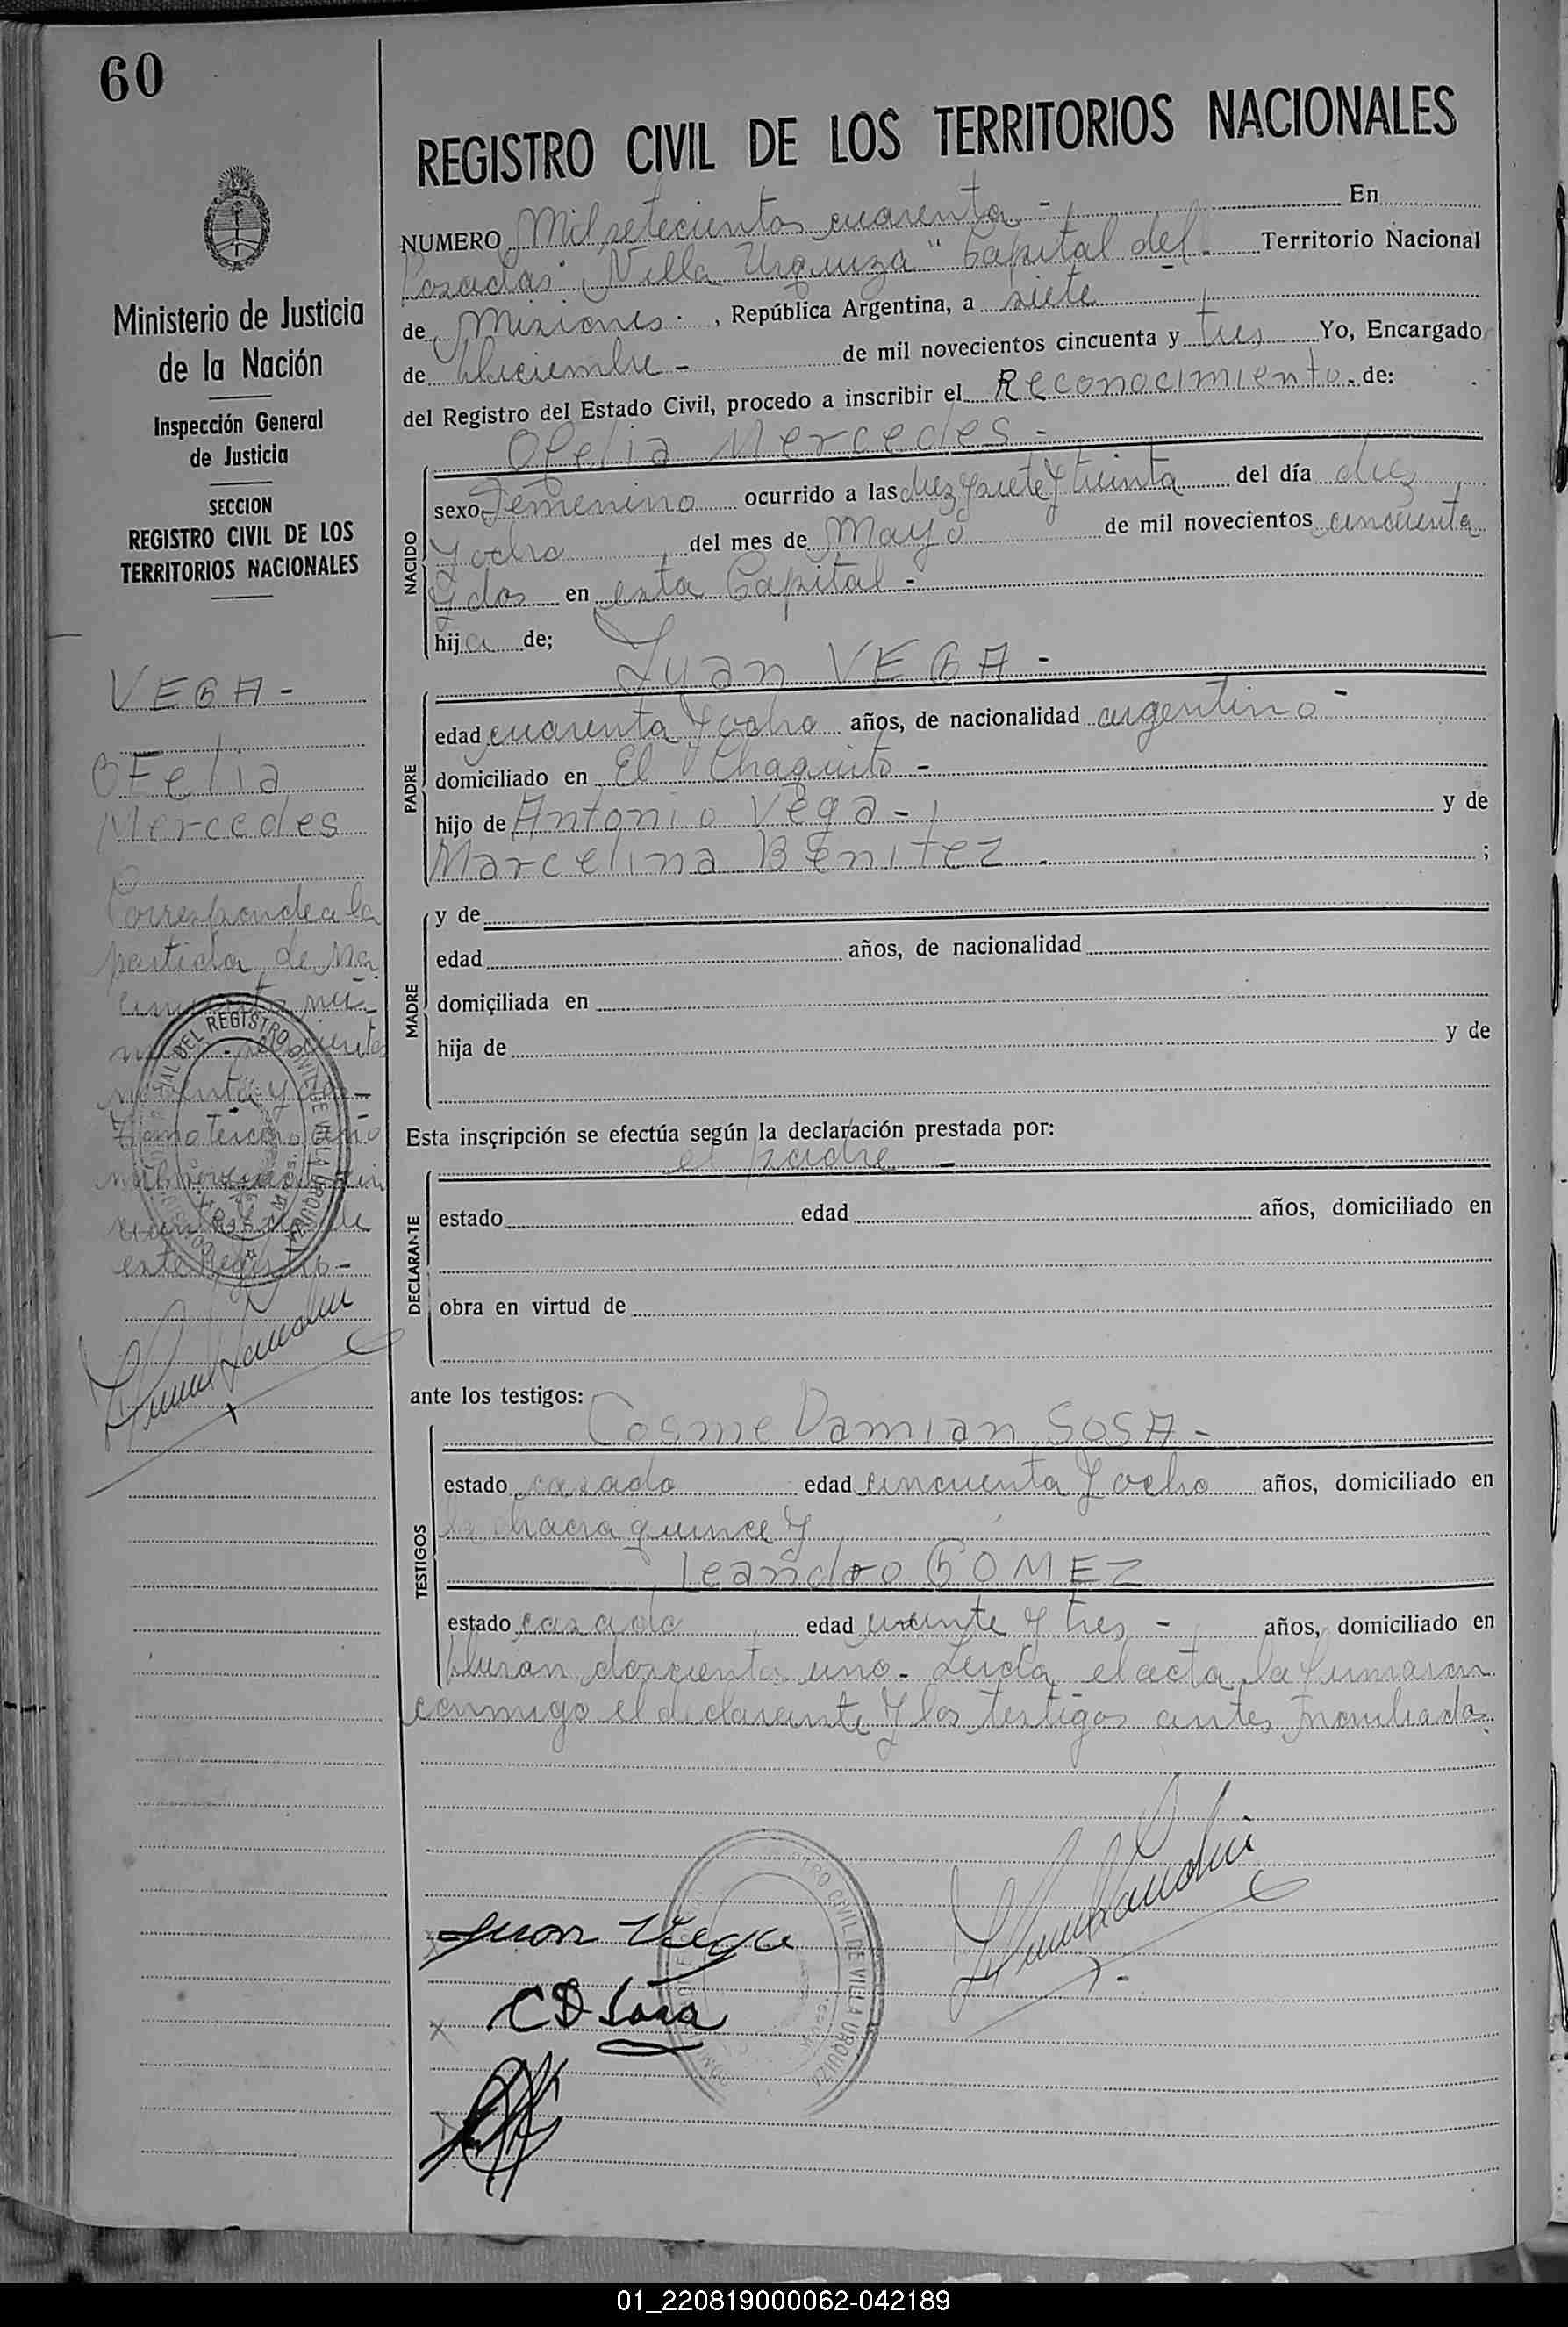 60
REGISTRO CIVIL DE LOS TERRITORIOS NACIONALES
NUMERO Mil setecientos cuarenta - En
Posadas "Villa Urquiza" Capital del Territorio Nacional
de Misiones. , República Argentina, a siete
de Diciembre - de mil novecientos cincuenta y tres Yo, Encargado
del Registro del Estado Civil, procedo a inscribir el Reconocimiento. de:
Ofelia Mercedes -
NACIDO
sexo Femenino ocurrido a las diez y siete y treinta del día diez
y ocho del mes de Mayo de mil novecientos cincuenta
y dos en esta Capital -
hija de;
Juan VEGA -
PADRE
edad cuarenta y ocho años, de nacionalidad argentino -
domiciliado en El Chaquito -
hijo de Antonio Vega - y de
Marcelina Benitez - ;
MADRE
y de
edad años, de nacionalidad
domiciliada en
hija de y de
Esta inscripción se efectúa según la declaración prestada por:
el padre -
DECLARANTE
estado edad años, domiciliado en
obra en virtud de
ante los testigos:
Cosme Damian SOSA -
TESTIGOS
estado casado edad cincuenta y ocho años, domiciliado en
la chacra quince y
Leandro GOMEZ
estado casado edad veinte y tres - años, domiciliado en
doscientos uno - Leida el acta la firmaron
conmigo el declarante y los testigos antes
Juan Vega
CD Sosa
Ministerio de Justicia
de la Nación
Inspección General
de Justicia
SECCION
REGISTRO CIVIL DE LOS
TERRITORIOS NACIONALES
VEGA -
OFelia
Mercedes
Corresponde a la
partida de na
cimiento nú-
noventa y
Tomo Tercero año
este Registro -
DEL REGISTRO CIVIL DE VILLA URQUIZA
CIVIL DE VILLA URQUIZA
01_220819000062-042189